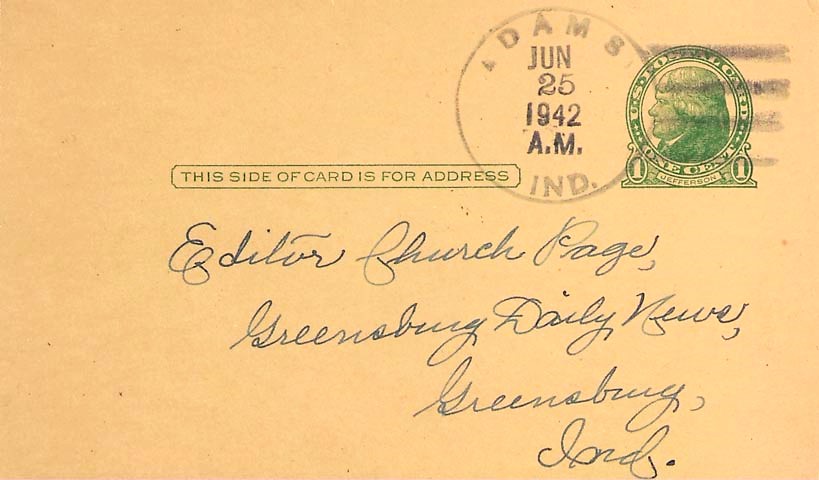 ADAMS
JUN
25
1942
A.M.
IND.
U.S. POSTAL CARD
ONE CENT
1 1
JEFFERSON
THIS SIDE OF CARD IS FOR ADDRESS
Editor Church Page,
Greensburg Daily News,
Greensburg,
Ind.